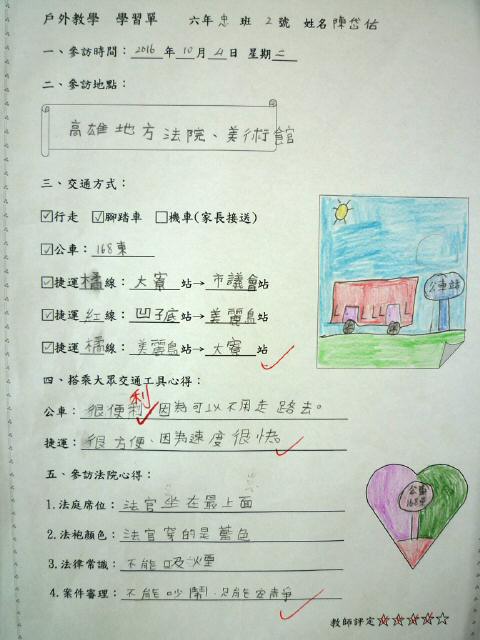 戶外教學 學習單 六年忠班 2號 姓名陳岱佑
一、參訪時間：2016年10月4日 星期二
二、參訪地點：
高雄地方法院、美術館
三、交通方式：
☑行走 ☑腳踏車 □機車(家長接送)
☑公車：168東
☑捷運橘線：大寮站→市議會站
☑捷運紅線：凹子底站→美麗島站
☑捷運橘線：美麗島站→大寮站
公車站
四、搭乘大眾交通工具心得：
利
公車：很便利，因為可以不用走路去。
捷運：很方便、因為速度很快。
五、參訪法院心得：
1.法庭席位：法官坐在最上面
2.法袍顏色：法官穿的是藍色
3.法律常識：不能吸煙
4.案件審理：不能吵鬧，只能安靜
公車
168東
教師評定☆☆☆☆☆